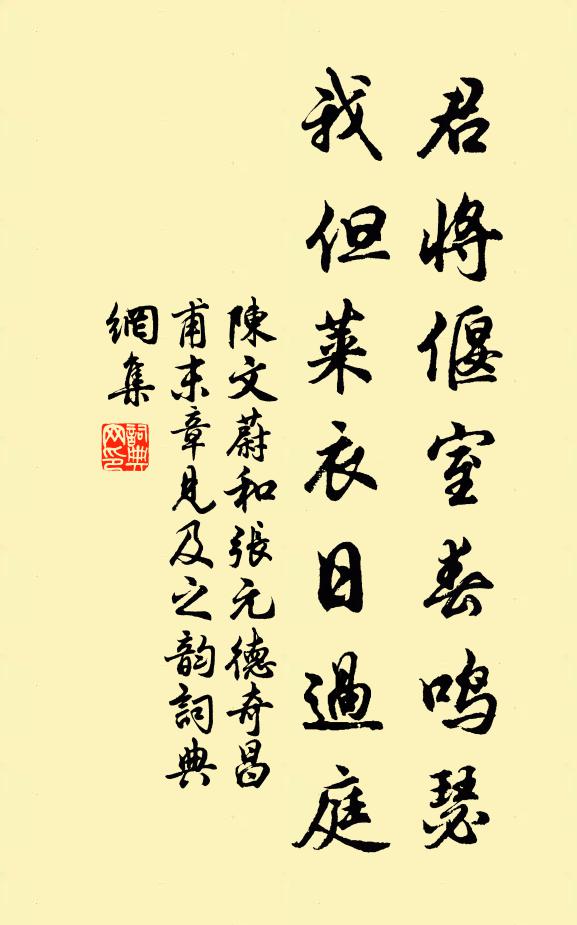 君將偃室春鳴瑟
我但萊衣日過庭
陳文蔚和張元德奇昌
甫末章見及之韵詞典
網集
詞典
网印